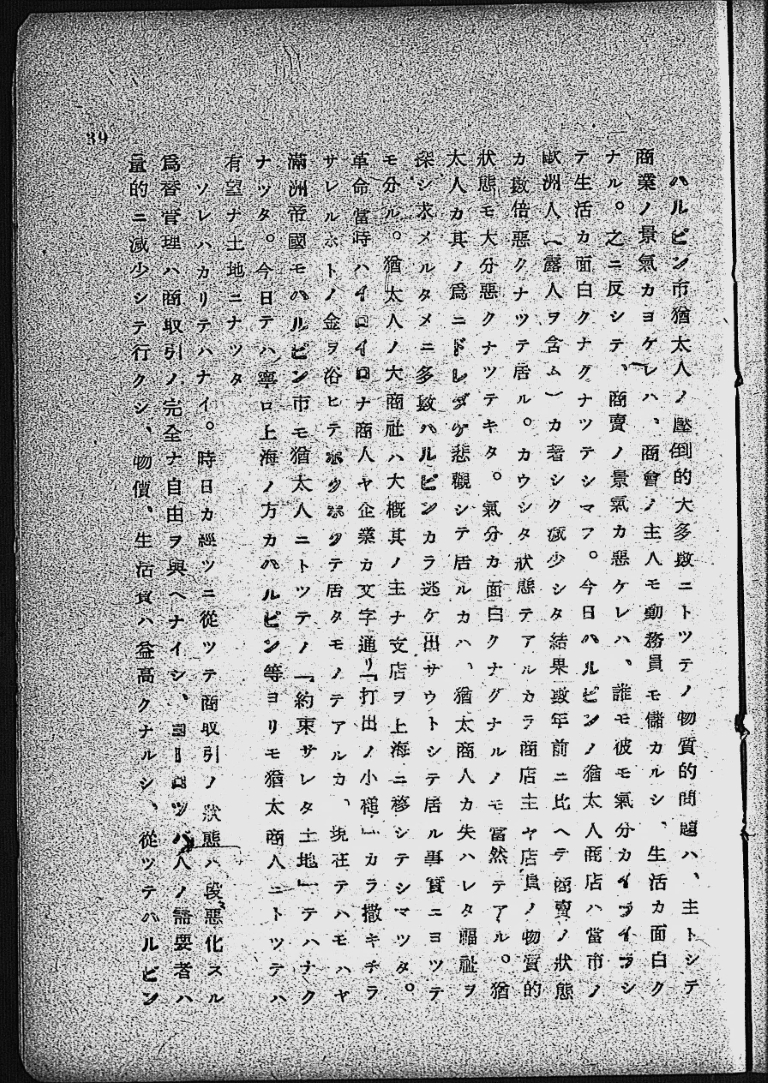 ハルビン市猶太人ノ壓倒的大多數ニトツテノ物質的問題ハ、主トシテ
商業ノ景氣カヨケレハ、商會ノ主人モ勤務員モ儲カルシ、生活カ面白ク
ナル。之ニ反シテ、商賣ノ景氣カ惡ケレハ、誰モ彼モ氣分カイライラシ
テ生活カ面白クナクナツテシマフ。今日ハルビンノ猶太人商店ハ當市ノ
歐洲人(露人ヲ含ム)カ著シク減少シタ結果數年前ニ比ヘテ商賣ノ狀態
カ數倍惡クナツテ居ル。カウシタ狀態テアルカラ商店主ヤ店員ノ物質的
狀態モ大分惡クナツテキタ。氣分カ面白クナクナルノモ當然テアル。猶
太人カ其ノ爲ニドレダケ悲觀シテ居ルカハ、猶太商人カ失ハレタ福祉ヲ
探シ求メルタメニ多數ハルビンカラ逃ケ出サウトシテ居ル事實ニヨツテ
モ分ル。猶太人ノ大商社ハ大概其ノ主ナ支店ヲ上海ニ移シテシマツタ。
革命當時ハイロイロナ商人ヤ企業カ文字通リ「打出ノ小槌」カラ撒キチラ
サレルホトノ金ヲ浴ヒテホクホクテ居タモノテアルカ、現在テハモハヤ
滿洲帝國モハルビン市モ猶太人ニトツテノ「約束サレタ土地」テハナク
ナツタ。今日テハ寧ロ上海ノ方カハルビン等ヨリモ猶太商人ニトツテハ
有望ナ土地ニナツタ
ソレハカリテハナイ。時日カ經ツニ從ツテ商取引ノ狀態ハ段惡化スル
爲替管理ハ商取引ノ完全ナ自由ヲ與ヘナイシ、ヨーロツパ人ノ需要者ハ
量的ニ減少シテ行クシ、物價、生活費ハ益高クナルシ、從ツテハルビン
39